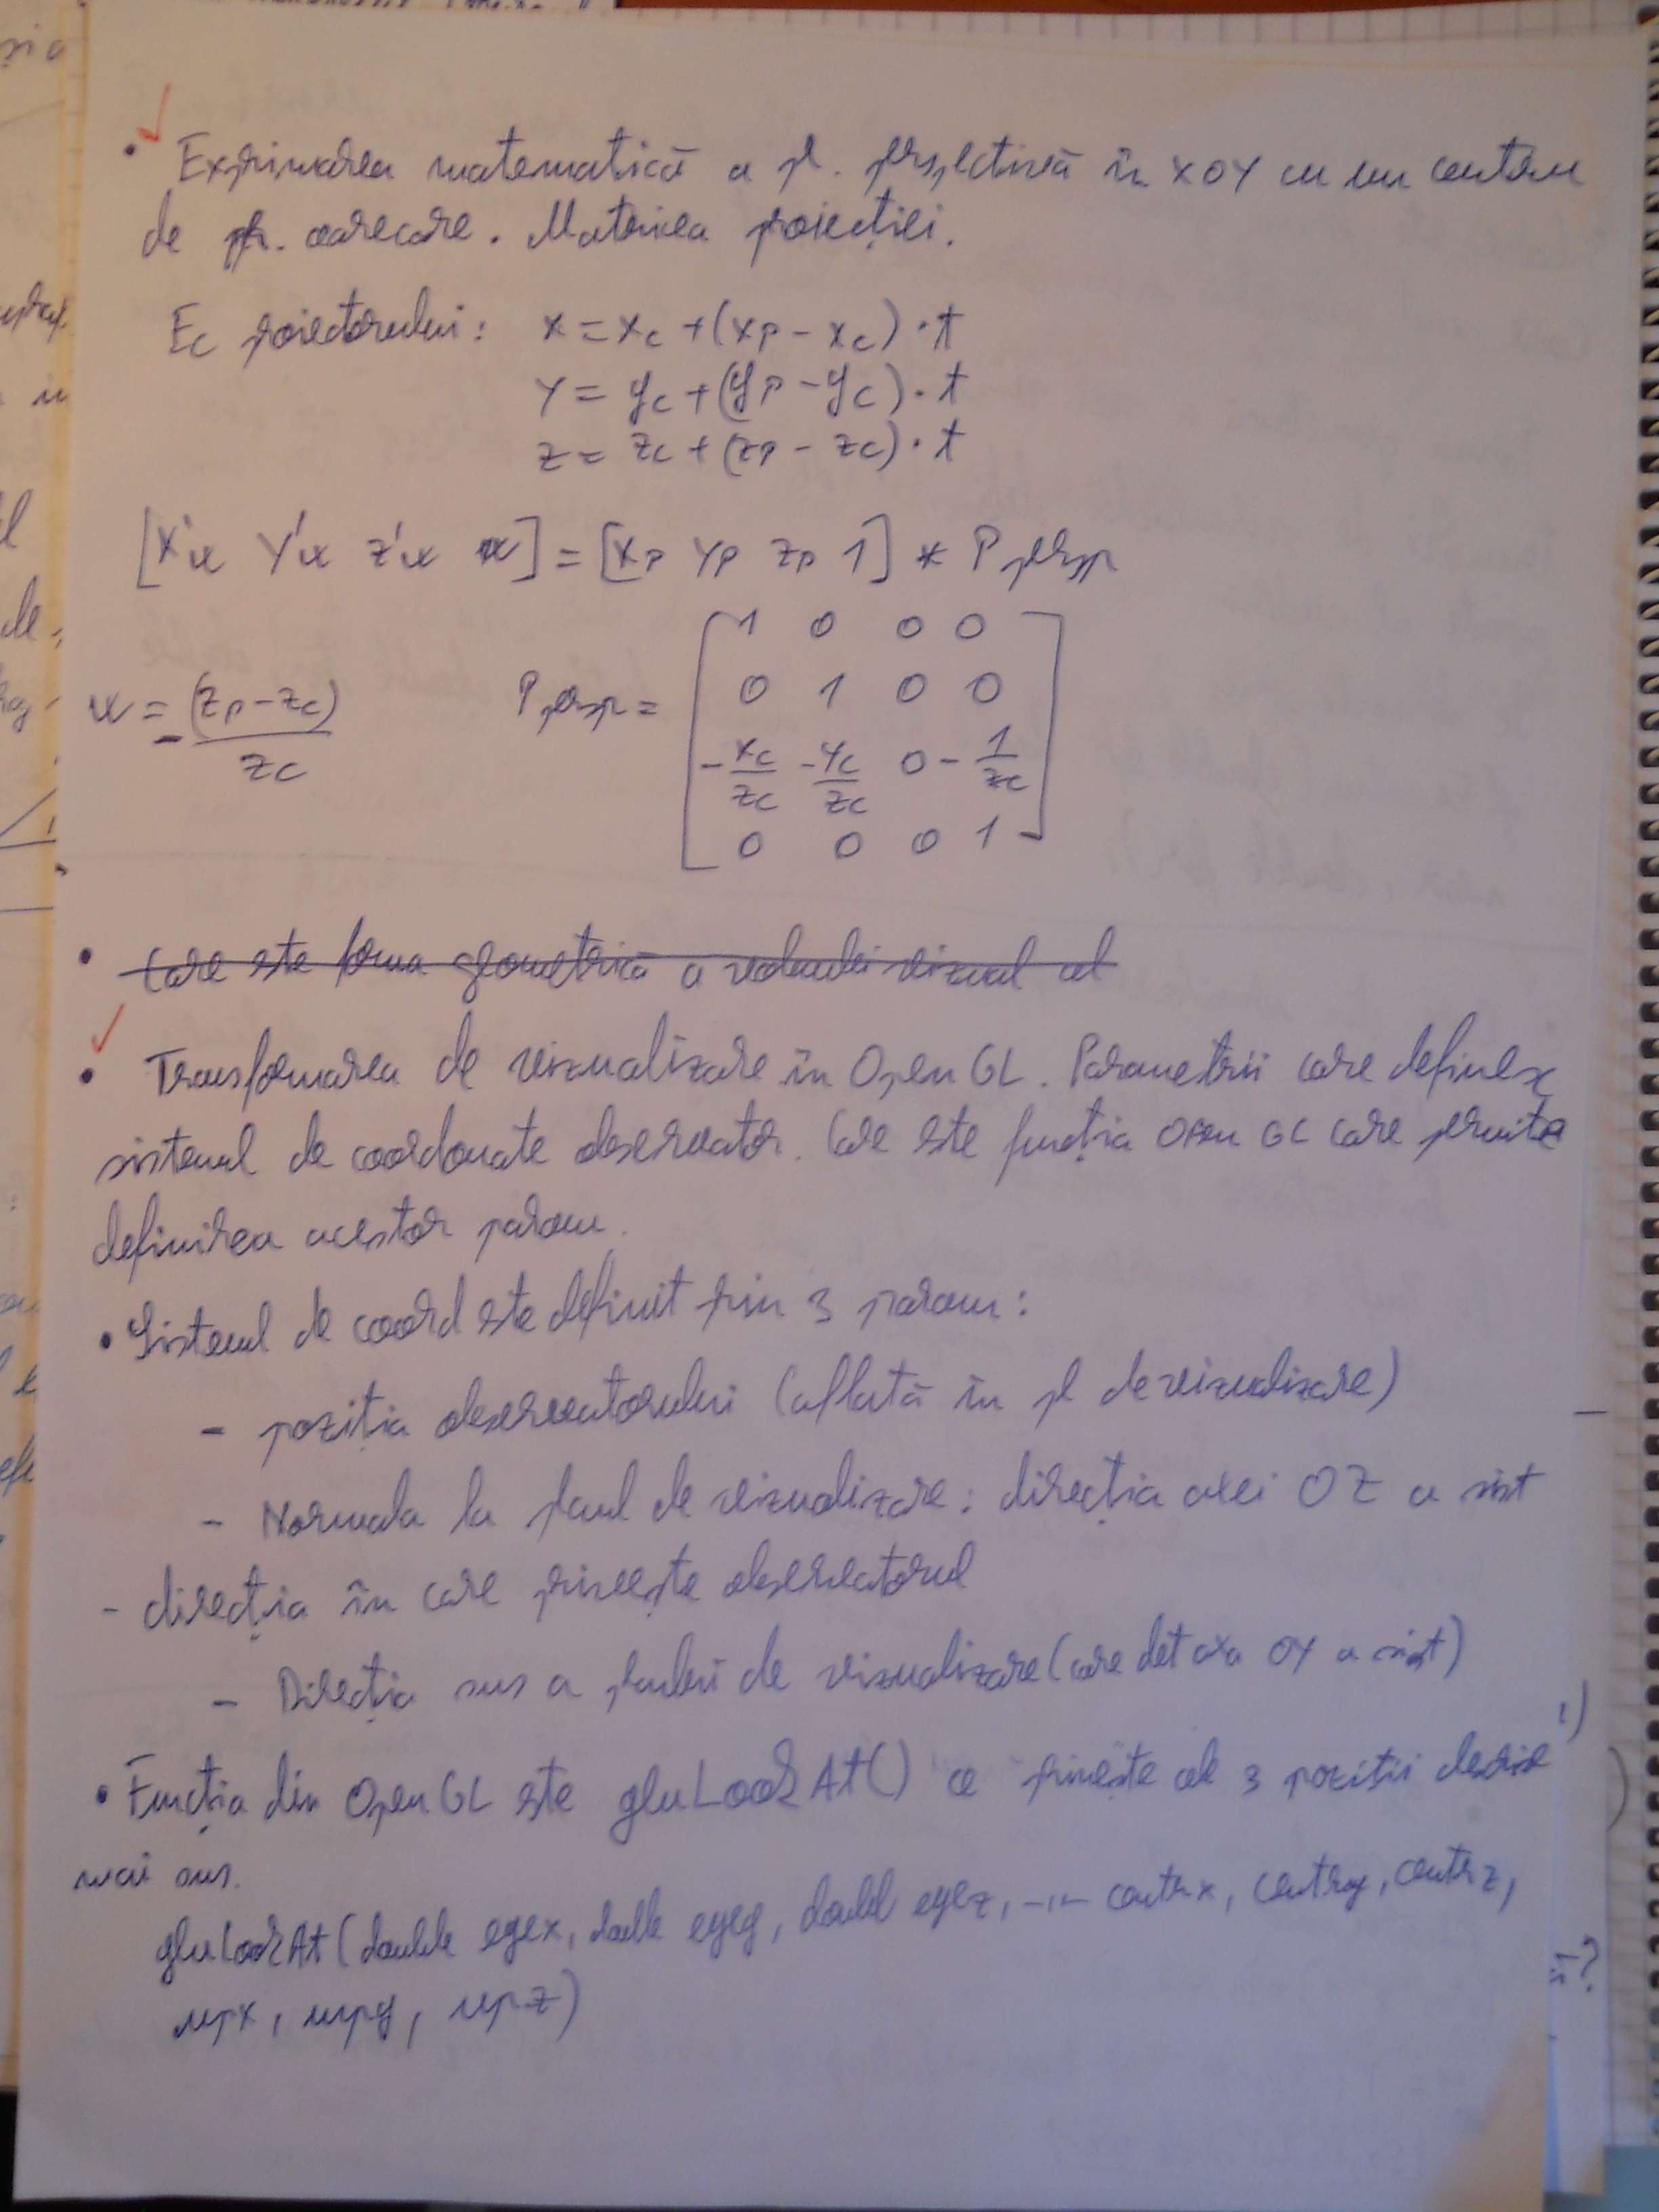 • Exprimarea matematică a pr. perspectivă în XOY cu un centru
de pr. oarecare. Matricea proiecției.
Ec proiectorului: x = xc + (xp - xc) · t
y = yc + (yp - yc) · t
z = zc + (zp - zc) · t
[x'w y'w z'w w] = [xp yp zp 1] * Ppersp
w = - (zp - zc) / zc
Ppersp = [ 1 0 0 0
0 1 0 0
-xc/zc -yc/zc 0 -1/zc
0 0 0 1 ]
• Care este forma geometrică a volumului vizual al
• Transformarea de vizualizare în OpenGL. Parametrii care definesc
sistemul de coordonate observator. Care este funcția OPen GL care permite
definirea acestor param.
• Sistemul de coord este definit prin 3 param:
- poziția observatorului (aflată în pl de vizualizare)
- Normala la planul de vizualizare: direcția axei OZ a sist
- direcția în care privește observatorul
- Direcția sus a planului de vizualizare (care det axa OY a sist)
• Funcția din OpenGL este gluLookAt() ce primește cele 3 poziții descrise
mai sus.
gluLookAt(double eyex, double eyey, double eyez, -"- centrx, centry, centrz,
upx, upy, upz)